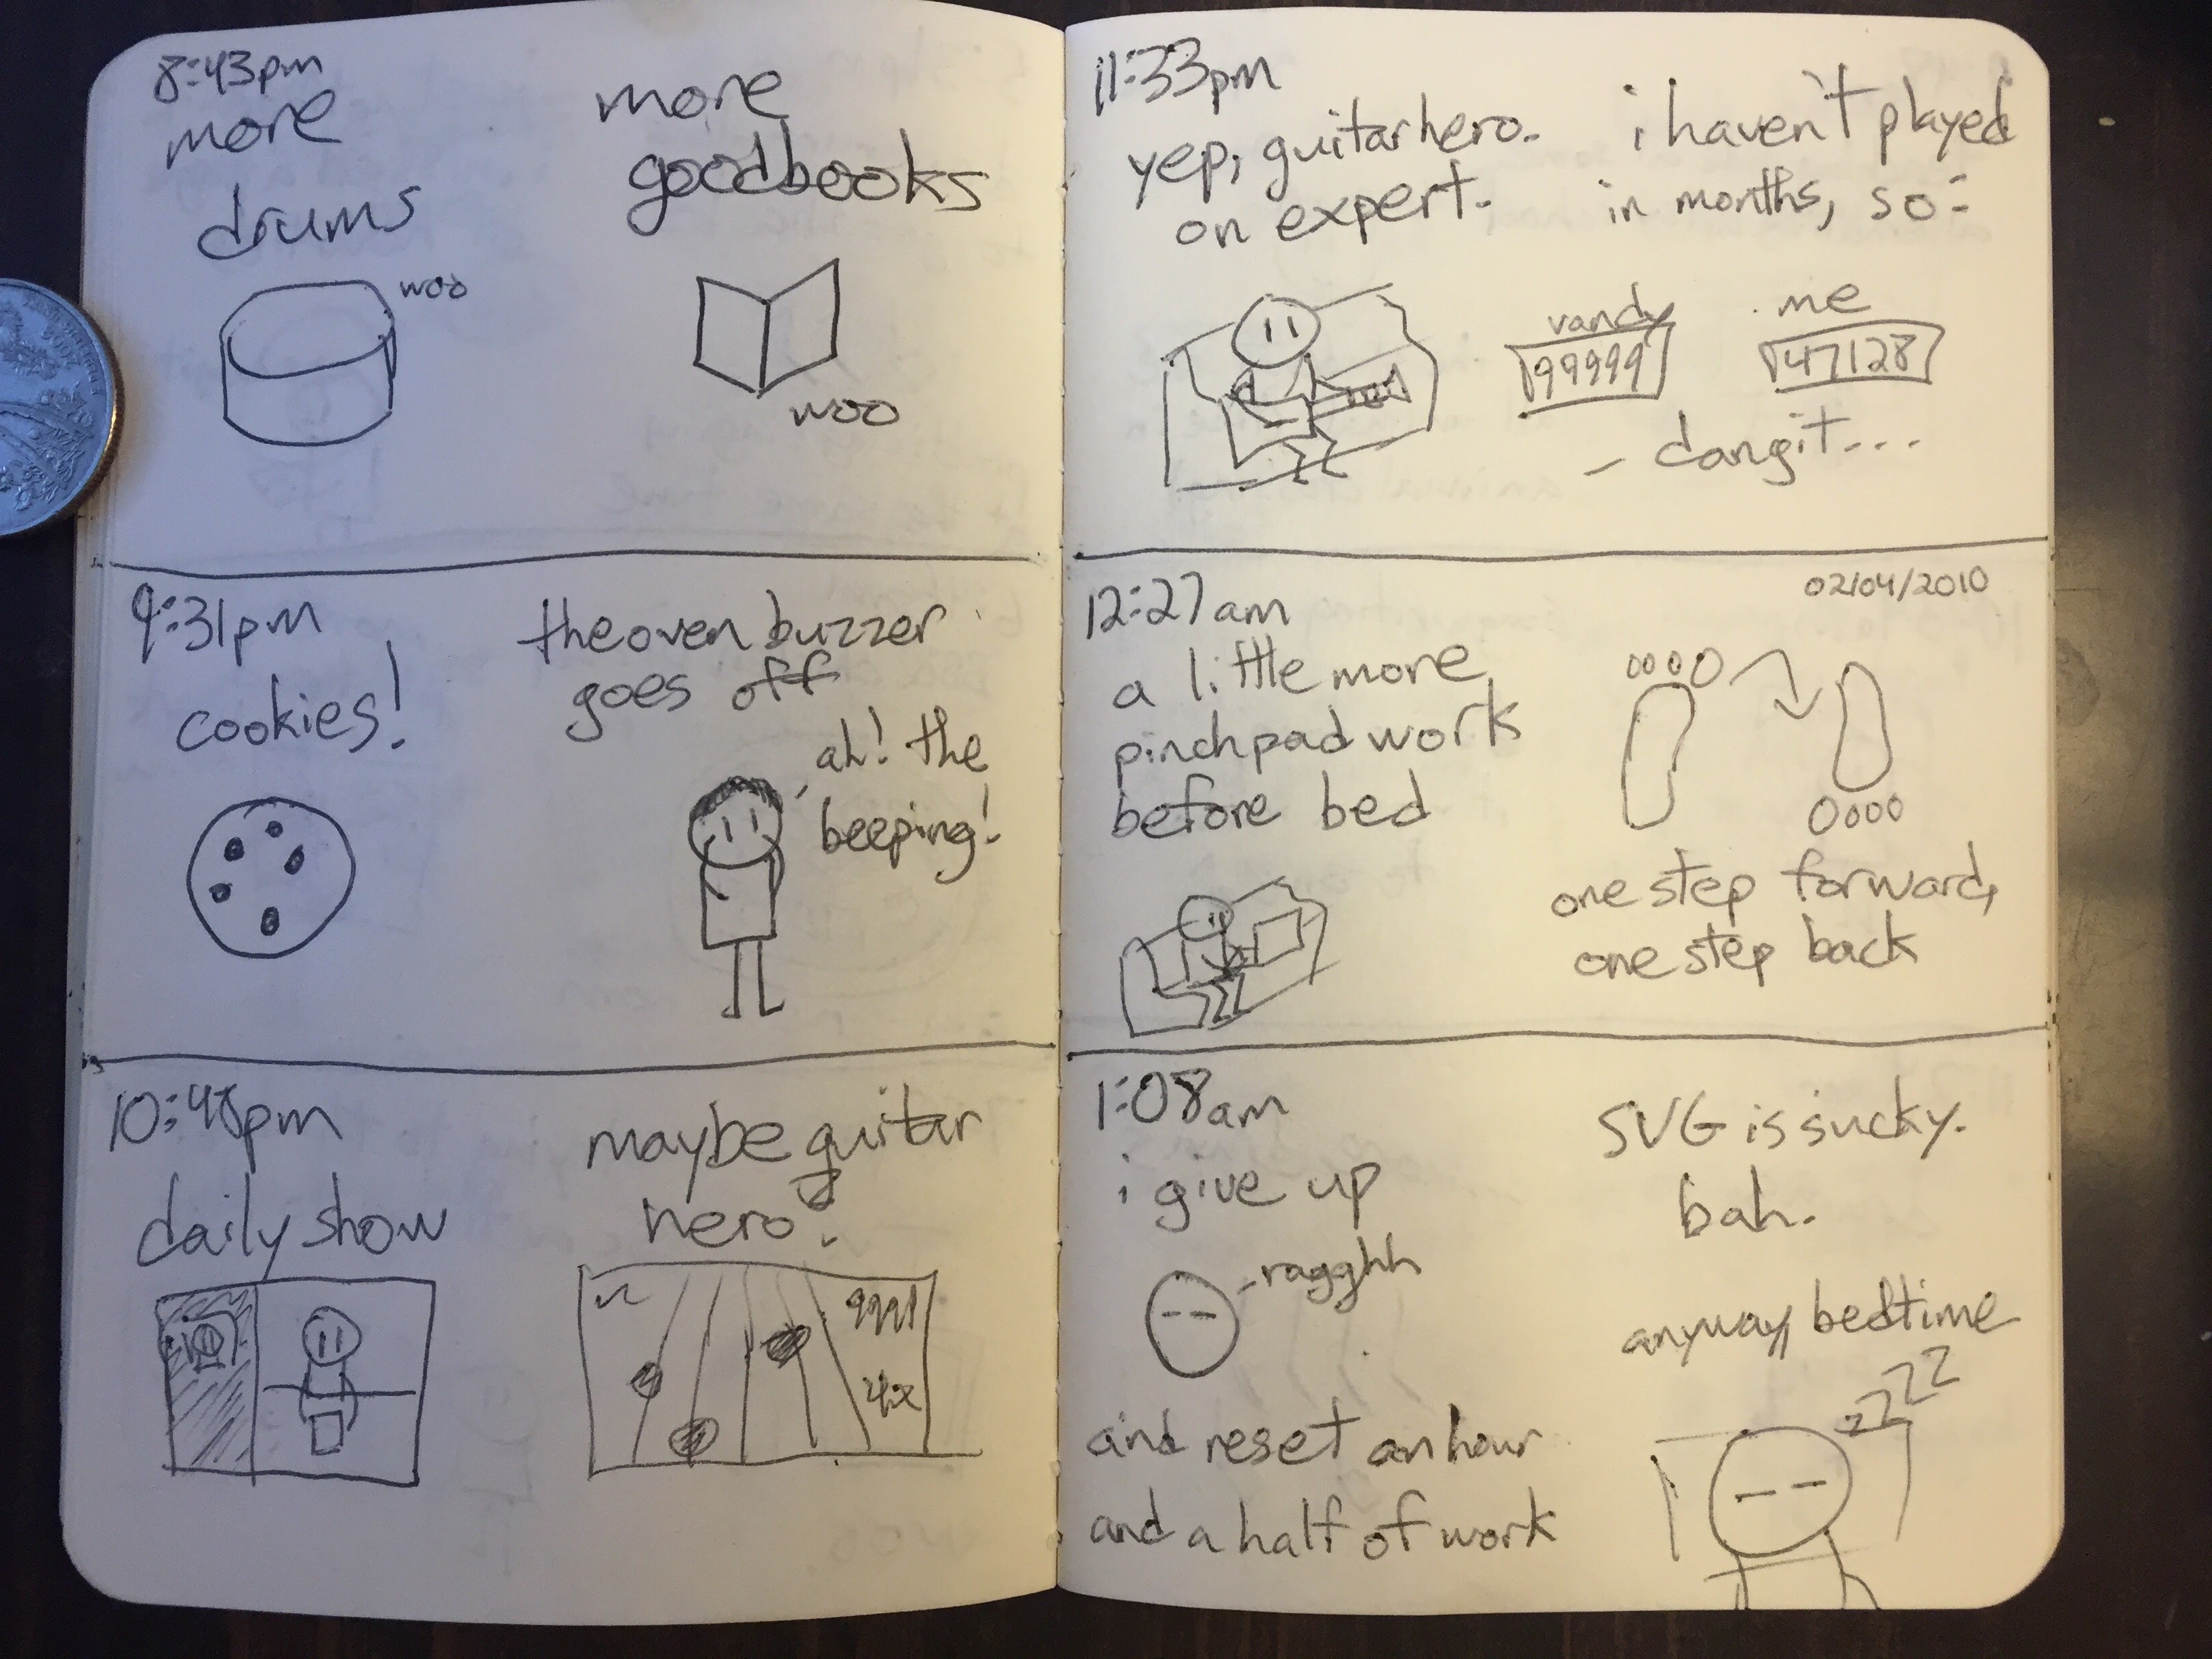 8:43pm
more
drums
woo
more
goodbooks
woo
9:31pm
cookies!
the oven buzzer
goes off
ah! the
beeping!
10:48pm
daily show
maybe guitar
hero?
4x
11:33pm
yep, guitar hero.
on expert.
i haven't played
in months, so:
vandy
99999
me
47128
dangit...
02/04/2010
12:27am
a little more
pinchpad work
before bed
one step forward,
one step back
1:08am
i give up
ragghh
and reset an hour
and a half of work
SVG is sucky.
bah.
anyway, bedtime
zzzz